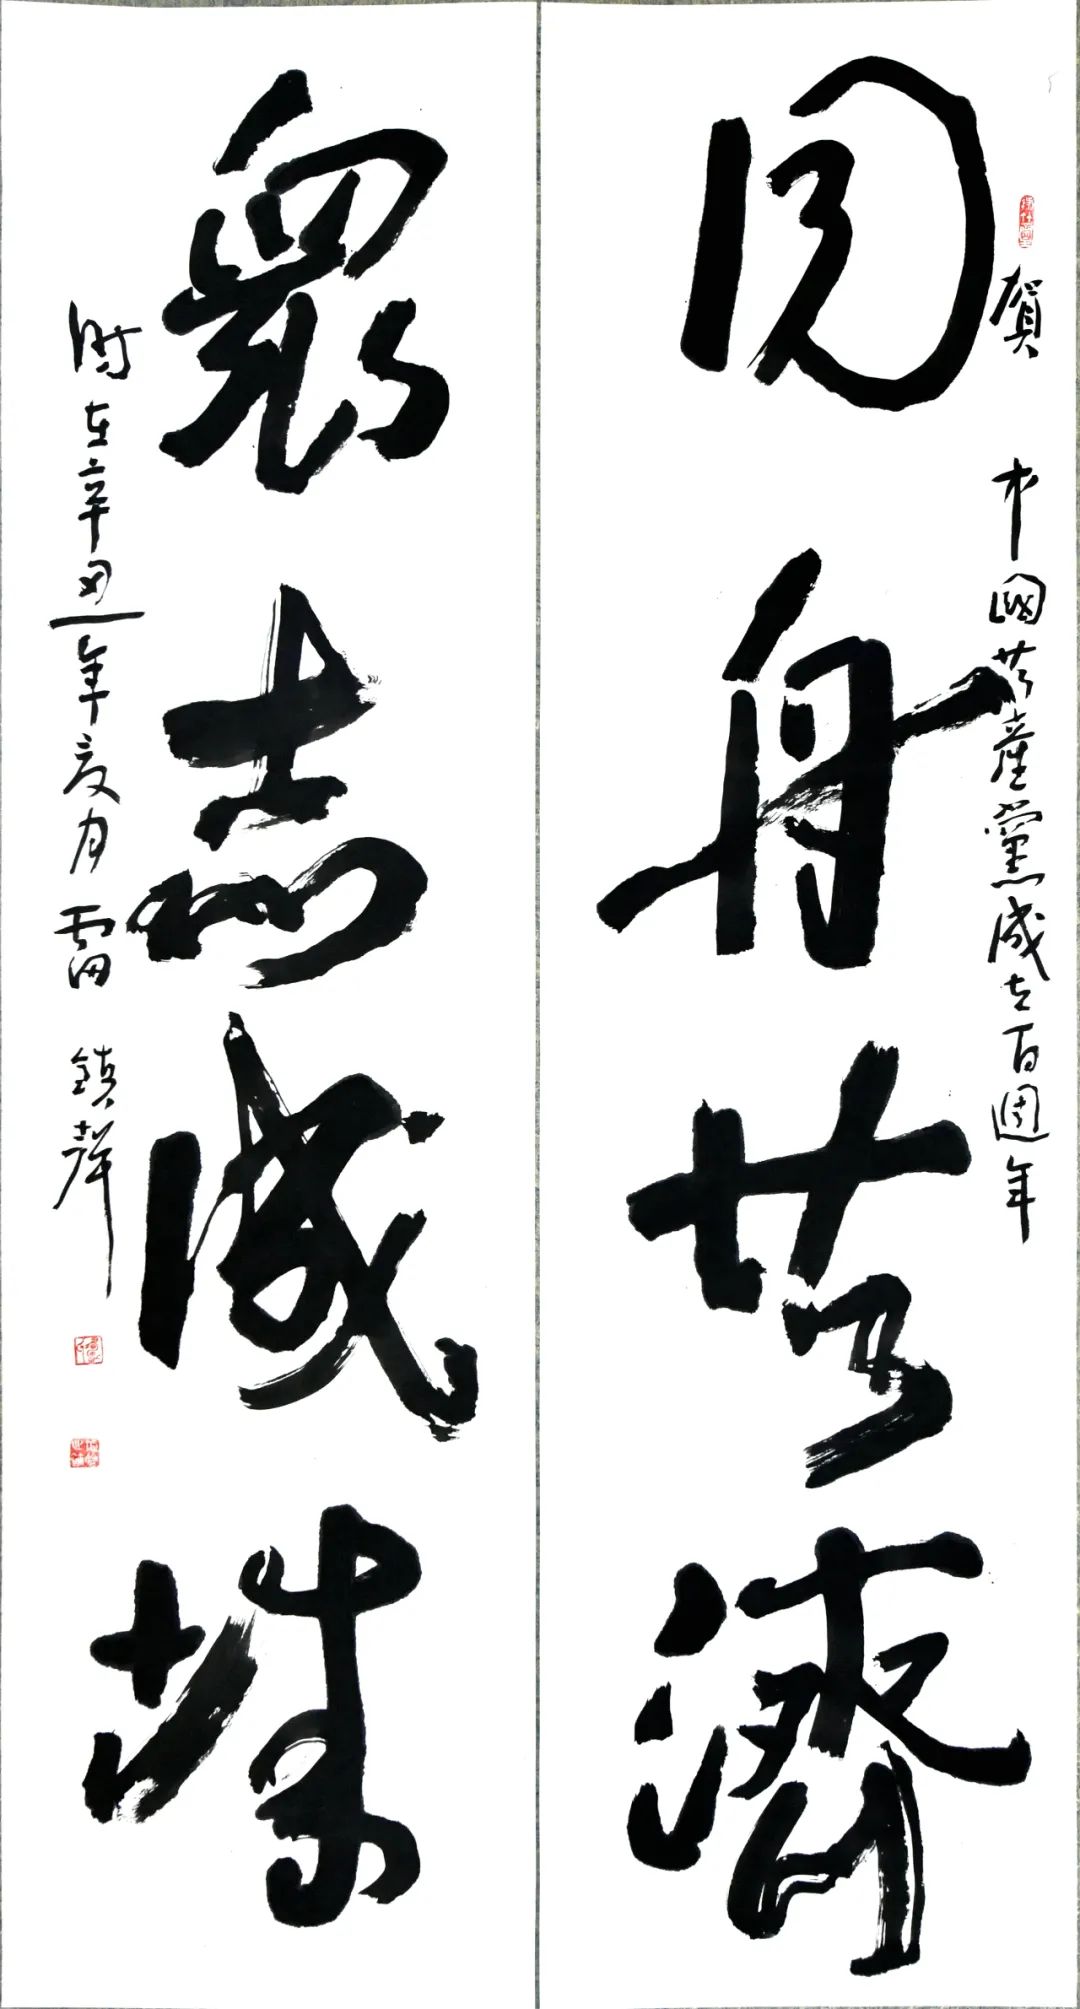 賀 中國共產黨成立百週年
同舟共濟
衆志成城
時在辛丑年夏月 雷鎮聲